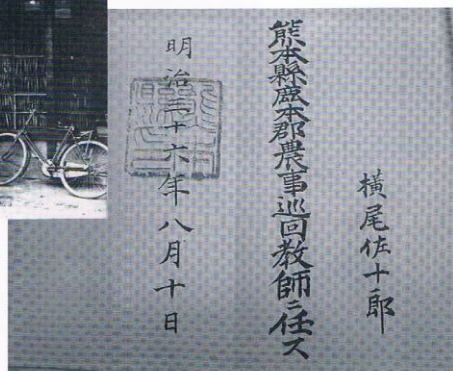 横尾佐十郎
熊本縣鹿本郡農事巡回教師ニ任ス
明治三十六年八月十日